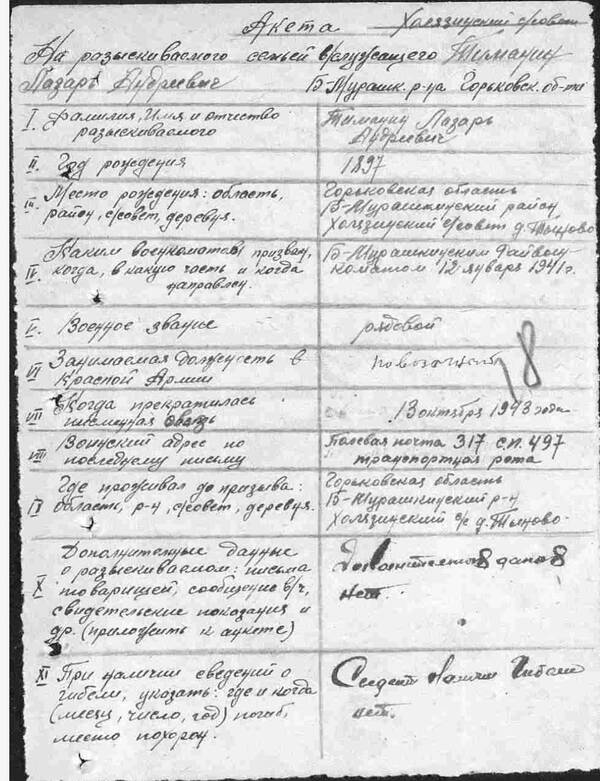 Акета Холязинский с/совет
На разыскиваемого семьей в/служащего Тиманин
Лазарь Андреевич Б-Мурашк. р-на Горьковск. об-ти
I. Фамилия, Имя и отчество
разыскиваемого
Тиманин Лазарь
Андреевич
II. Год рождения
1897
III. Место рождения: область,
район, с/совет, деревня.
Горьковская область
Б-Мурашкинский район
Холязинский с/совет д.
IV. Каким военкоматом призван,
когда, в какую часть и когда
направлен.
Б-Мурашкинским Райвоен-
коматом 12 января 1941 г.
V. Военное звание
рядовой
VI Занимаемая должность в
Красной Армии
повозочный
18
VII Когда прекратилась
письменная связь
13 октября 1943 года
VIII Воинский адрес по
последнему письму
Полевая почта 317 сп. 497
транспортная рота
IX Где проживал до призыва:
область, р-н, с/совет, деревня.
Горьковская область
Б-Мурашкинский р-н
Холязинский с/с д.
X Дополнительные данные
о разыскиваемом: письма
товарищей, сообщение в/ч,
свидетельские показания и
др. (приложить к анкете)
нет.
XI При наличии сведений о
гибели, указать: где и когда
(месяц, число, год) погиб,
место похорон.
нет.